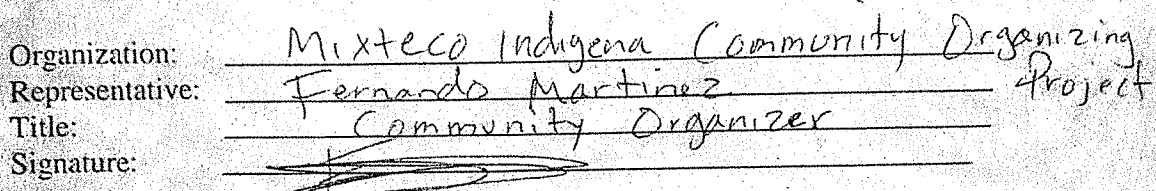 Organization: Mixteco Indigena Community Organizing
Project
Representative: Fernando Martinez
Title: Community Organizer
Signature: